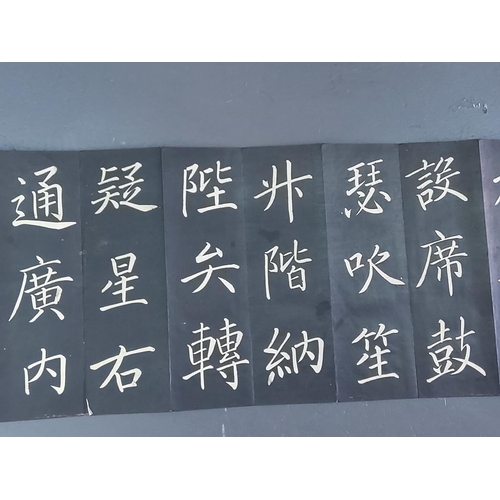 設席鼓
瑟吹笙
升階納
陛弁轉
疑星右
通廣内